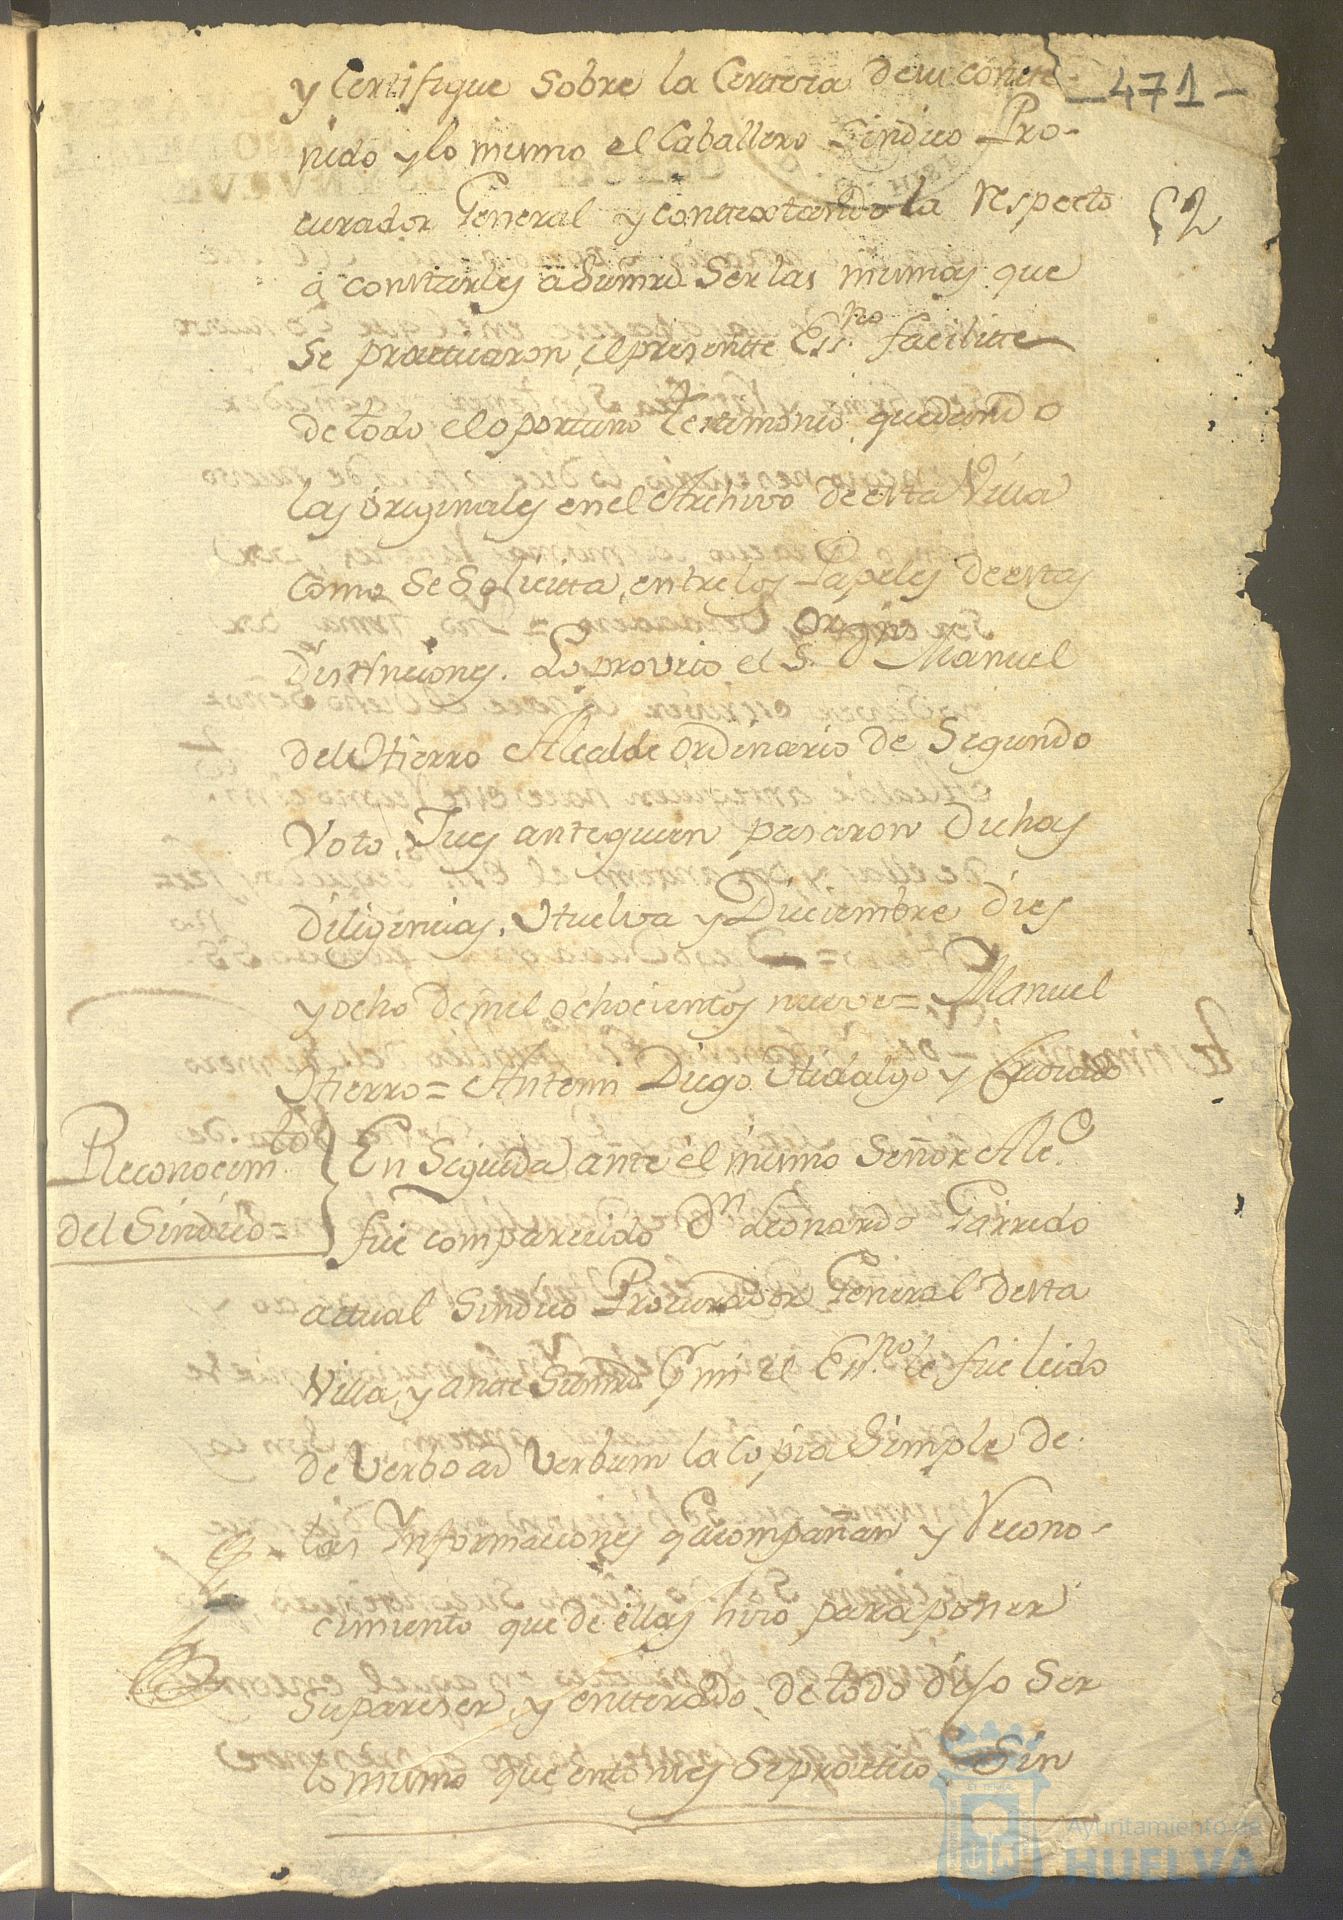 y Certifique sobre la Certeza de su conte-
nido y lo mismo el Caballero Sindico Pro-
curador General y contextando la respecto
á constarles a Sumrd. Ser las mismas que
se practicaron, el presente Essno. facilitte
de todo el oportuno testimonio, quedando
las originales en el Archivo de esta Villa
Como se Solicita, entre los Papeles de estas
Distinciones. Lo proveio el Sr. Dn. Manuel
del Hierro Alcalde Ordinario de Segundo
Voto, Jues ante quien pasaron Dichas
Diligencias, Huelva y Diciembre dies
y ocho de mil ochocientos nueve = Manuel
Hierro = Antemi Diego Hidalgo y
Reconocimto.
del Sindico =
En Seguida ante el mismo Señor Alce.
fue comparecido Dn. Leonardo Garrido
actual Sindico Procurador General desta
Villa, y ante Sumrd. Pr. mi el Essno. le fue leido
de Verbo ad Verbum la Copia Simple de
las Informaciones q acompañan y Recono-
cimiento que de ellas hizo, para poner
Su pareser, y entterado de todo dijo Ser
lo mismo que entonses Se practico, Sin
471
52
Ayuntamiento de
HUELVA